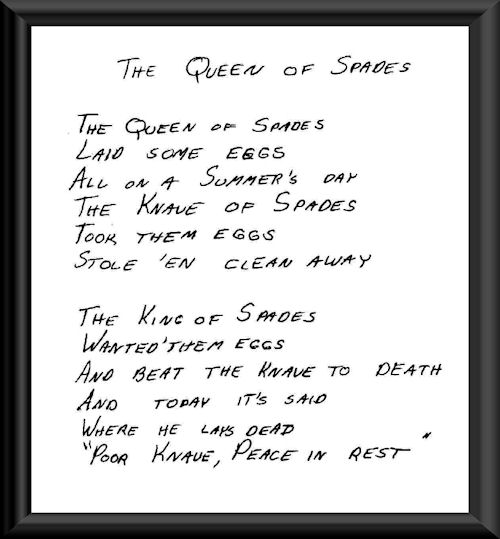 The Queen of Spades
The Queen of Spades
Laid some eggs
All on a Summer's day
The Knave of Spades
Took them eggs
Stole 'en clean away
The King of Spades
Wanted 'them eggs
And beat the Knave to death
And today it's said
Where he lays dead
"Poor Knave, Peace in rest"